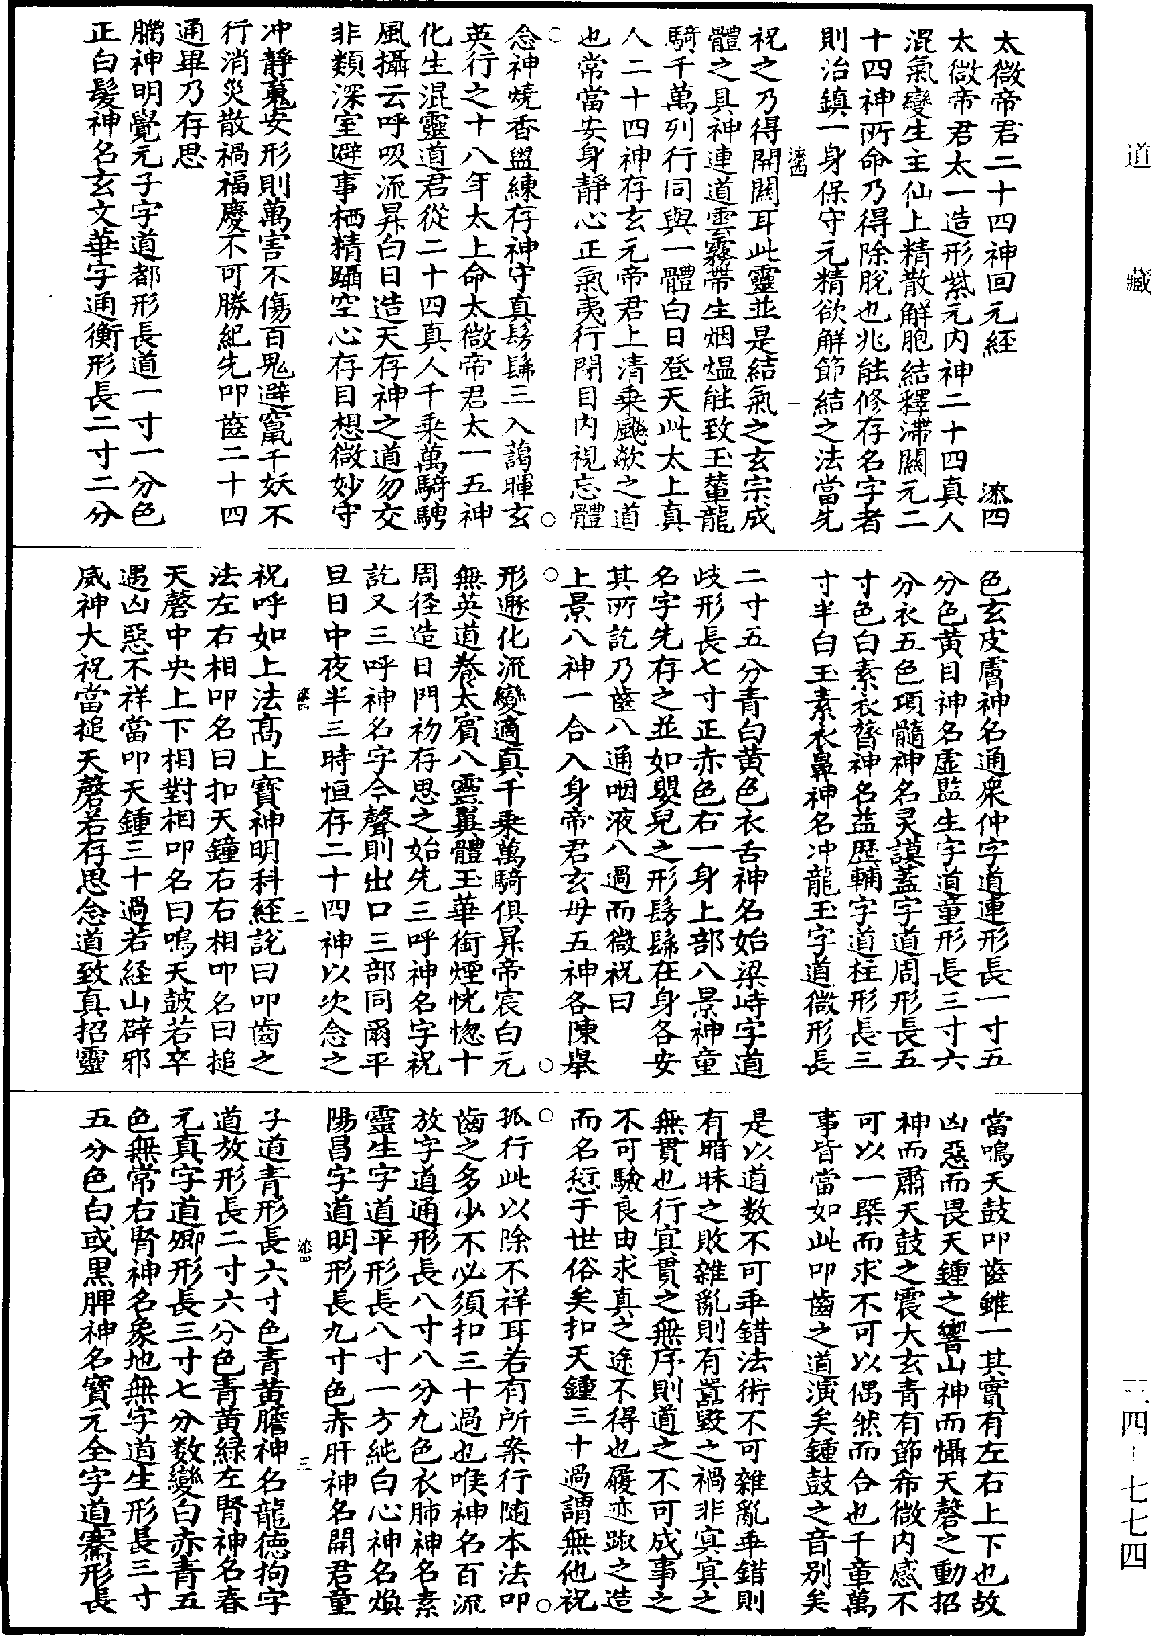 太微帝君二十四神回元經　漆四
太微帝君太一造形紫元内神二十四真人
混氣變生主仙上精散解胞結釋滯關元二
十四神所命乃得除脫也兆能修存名字者
則治鎮一身保守元精欲解節結之法當先
祝之乃得開關耳此靈並是結氣之玄宗成
體之具神連道雲霧帶生烟熅能致玉輦龍
騎千萬列行同與一體白日登天此太上真
人二十四神存玄元帝君上清乘飈欻之道
也常當安身靜心正氣夷行閉目内視忘體
念神燒香盥練存神守真髣髴三入藹暉玄
英行之十八年太上命太微帝君太一五神
化生混靈道君從二十四真人千乘萬騎騁
風攝云呼吸流昇白日造天存神之道勿交
非類深室避事栖精躡空心存目想微妙守
冲靜蒐安形則萬害不傷百鬼避竄千妖不
行消災散禍福慶不可勝紀先叩齒二十四
通畢乃存思
腦神明覺元子字道都形長道一寸一分色
正白髮神名玄文華字通衡形長二寸二分
色玄皮膚神名通衆仲字道連形長一寸五
分色黄目神名虚監生字道童形長三寸六
分衣五色項髓神名灵謨蓋字道周形長五
寸色白素衣膂神名益歷輔字道柱形長三
寸半白玉素衣鼻神名冲龍玉字道微形長
二寸五分青白黄色衣舌神名始梁峙字道
歧形長七寸正赤色右一身上部八景神童
名字先存之並如嬰兒之形髣髴在身各安
其所訖乃齒八通咽液八過而微祝曰
上景八神一合入身帝君玄母五神各陳舉
形遯化流變適真千乘萬騎俱昇帝宸白元
無英道養太賓八靈翼體玉華銜煙恍惚十
周徑造日門初存思之始先三呼神名字祝
訖又三呼神名字今聲則出口三部同爾平
旦日中夜半三時恒存二十四神以次念之
祝呼如上法高上寶神明科經說曰叩齒之
法左右相叩名曰扣天鐘右右相叩名曰搥
天磬中央上下相對相叩名曰鳴天皷若卒
遇凶惡不祥當叩天鍾三十過若經山辟邪
威神大祝當搥天磬若存思念道致真招靈
當鳴天鼓叩齒雖一其實有左右上下也故
凶惡而畏天鍾之響山神而懾天磬之動招
神而肅天鼓之震大玄青有節希微内感不
可以一槩而求不可以偶然而合也千童萬
事皆當如此叩齒之道演矣鍾鼓之音别矣
是以道数不可乖錯法術不可雜亂乖錯則
有暗昧之敗雜亂則有嚣毀之禍非寅寅之
無貫也行寅貫之無序則道之不可成事之
不可驗良由求真之途不得也履迹踟之造
而名愆于世俗矣扣天鍾三十過謂無他祝
孤行此以除不祥耳若有所案行随本法叩
齒之多少不必須扣三十過也喉神名百流
放字道通形長八寸八分九色衣肺神名素
靈生字道平形長八寸一方純白心神名焕
陽昌字道明形長九寸色赤肝神名開君童
子道青形長六寸色青黄膽神名龍德拘字
道放形長二寸六分色青黄緑左腎神名春
元真字道卿形長三寸七分数變白赤青五
色無常右腎神名象地無字道生形長三寸
五分色白或黒脾神名寶元全字道騫形長
漆四
一
漆四
二
漆四
三
道藏
三四—七七四